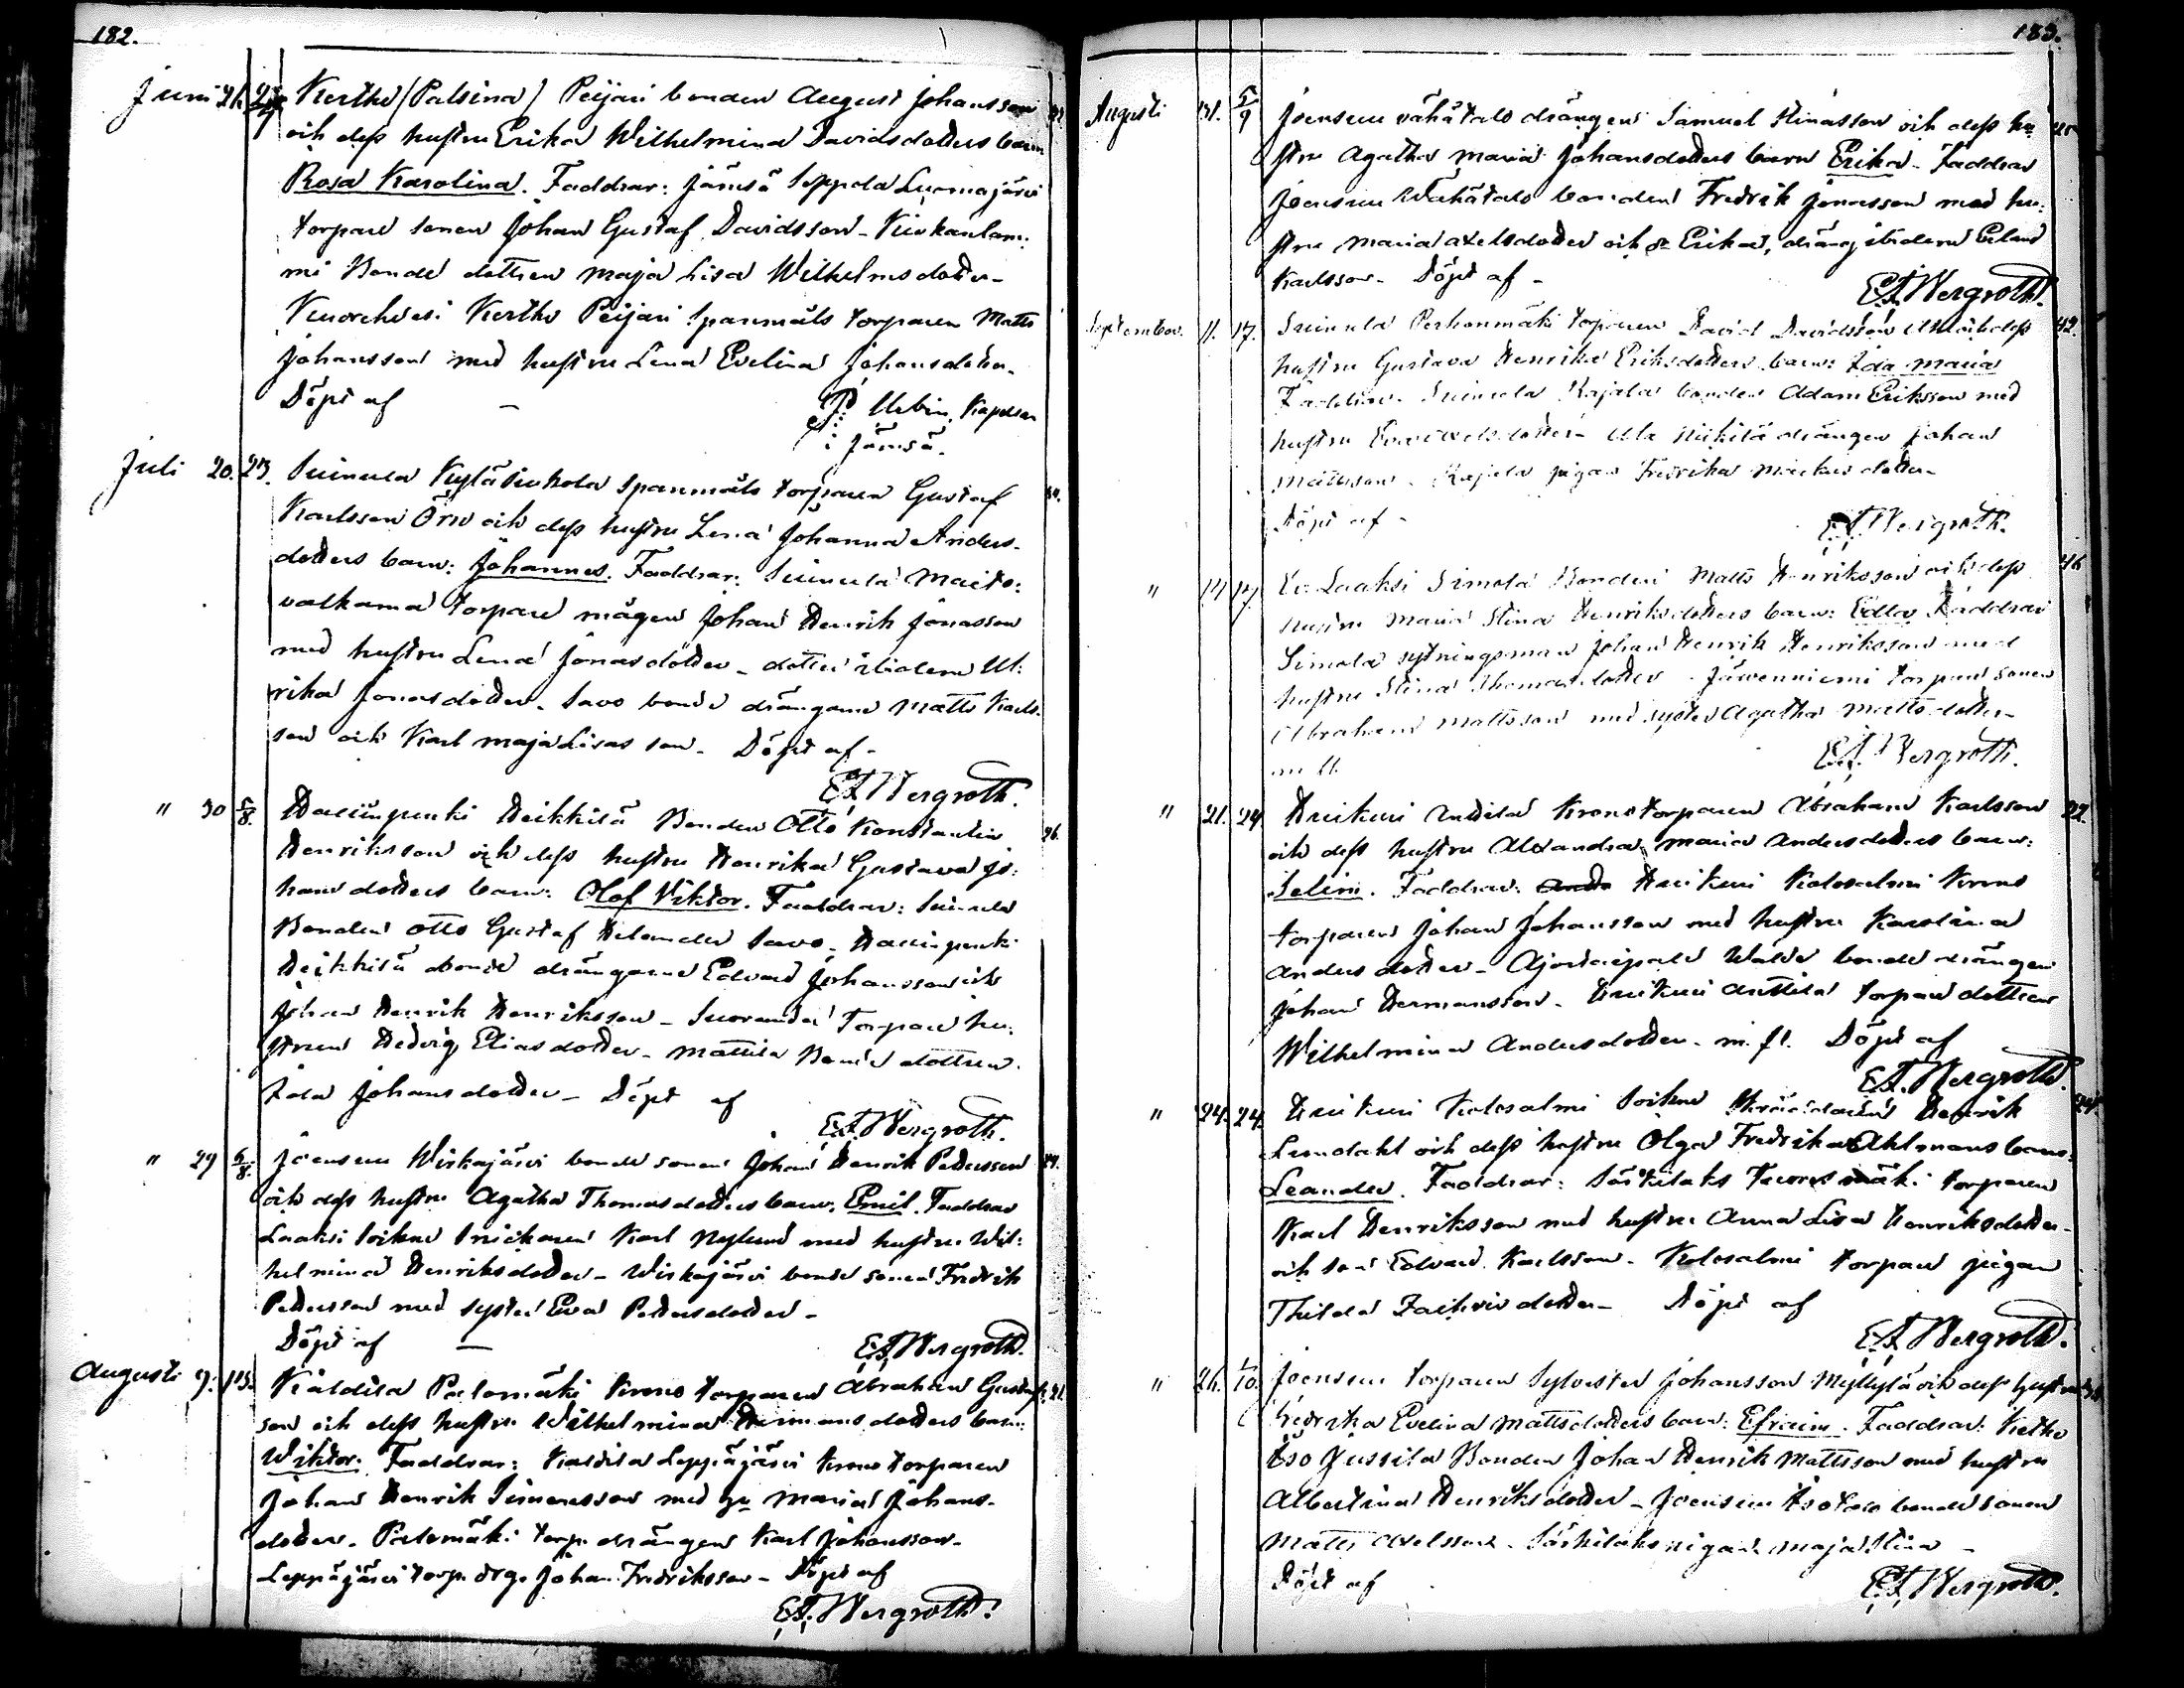 182.
Juni 21. Kertko /Palsina/ Peijari bonden August Johansson
och dess hustru Erika Wilhelmina Davidsdotters barn
Rosa Karolina. Faddrar: Jämsä Seppola Luomajärvi
torpare sonen Johan Gustaf Davidsson -
mi Bonde dottren Maja Lisa Wilhelmsdotter -
Kuorehvesi Kertko Peijari Spanmåls torparen Matts
Johansson med hustru Lena Evelina Johansdotter.
Döpt af - Urbin, Kaplan
i Jämsä.
Juli 20. 23. Suinula Kyläsiukola Spanmåls torparen Gustaf
Karlsson Örn och dess hustru Lena Johanna Anders-
dotters barn: Johannes. Faddrar: Suinula Maito:
valkama torpare mågen Johan Henrik Jonasson
med hustru Lena Jonasdotter - dotter Ul:
rika Jonasdotter. Savo bonde drängarne Matts Karls-
son och Karl Maja Lisas son - Döpt af -
E.A. Wergroth.
" 30 5/8. Hallinpenki Heikkilä Bonden Otto Konstantin 26.
Henriksson och dess hustru Henrika Gustava Jo:
hansdotters barn: Olof Viktor. Faddrar: Suinula
Bonden Otto Gustaf Helander Savo - Hallinpenki
Heikkilä bonde drängarne Edvard Johansson och
Johan Henrik Henriksson - Suoranda Torpare hu:
strun Hedvig Eliasdotter - Mattila Bonde dottren
Ida Johansdotter - Döpt af
E.A. Wergroth.
" 29 5/8. Joensuu Wirkajärvi bonde sonen Johan Henrik Pettersson
och dess hustru Agatha Thomasdotters barn: Emil. Faddrar
Laaksi Soikns Snickaren Karl Nylund med hustru Wil:
helmina Henriksdotter - Wirkajärvi bonde sonen Fredrik
Pettersson med syster Eva Pettersdotter -
Döpt af - E.A. Wergroth.
Augusti 9. 13. Kaldila Palomäki Krono torparen Abraham Gustafs: 21.
son och dess hustru Wilhelmina Hermansdotters barn:
Wiktor. Faddrar: Kaldila Leppäjärvi Krono torparen
Johan Henrik Simonsson med hu Maria Johans-
dotter. Palomäki torp. drängen Karl Johansson -
Leppäjärvi torp. drg. Johan Fredriksson - Döpt af
E.A. Wergroth.
183.
Augusti 31. 5/9 Joensuu Vähätalo drängen Samuel Stinasson och dess hu
stru Agatha Maria Johansdotters barn Erika - Faddrar
Joensuu Wähätalo bonden Fredrik Jonasson med hu:
stru Maria Axelsdotter och Erika, dräng Erland
Karlsson - Döpt af -
E.A. Wergroth.
September. 11. 17. Suinula Perhonmäki torparen David Davidsson och dess 42.
hustru Gustava Henrika Eriksdotters barn: Ida Maria
Faddrar. Suinula Rajala bonden Adam Eriksson med
hustru Eva Axelsdotter - Ala Nikkilä drängen Johan
Mattsson - Rajala pigan Fredrika Markusdotter -
Döpt af -
E.A. Wergroth.
" 14 17. Laaksi Simola Bonden Matts Henriksson och dess 46
hustru Maria Stina Henriksdotters barn: Edla Faddrar
Simola sytningsman Johan Henrik Henriksson med
hustru Stina Thomasdotter - Jäwenniemi torpare sonen
Abraham Mattsson med syster Agatha Mattsdotter -
m. fl. E.A. Wergroth.
" 21. 24. Anttila Kronotorparen Abraham Karlsson 22.
och dess hustru Alexandra Maria Andersdotters barn:
Selim. Faddrar: Kolosalmi Krono
torparen Johan Johansson med hustru Karolina
Andersdotter - bonde drängen
Johan Hermansson - Anttila torpare dottren
Wilhelmina Andersdotter - m. fl. Döpt af
E.A. Wergroth.
" 24. 24. Kolosalmi Soikns Skräddaren Henrik
Lundahl och dess hustru Olga Fredrika Ahlmans barn:
Leander. Faddrar: Särkilaks torparen
Karl Henriksson med hustru Anna Lisa Henriksdotter -
och son Edvard Karlsson - Kolosalmi torpare pigan
Thilda - Döpt af
E.A. Wergroth.
" 26. 1/10. Joensuu torparen Sylvester Johansson Myllylä och dess hustru
Fredrika Evelina Mattsdotters barn: Efraim. Faddrar: Kertko
Iso Jussila Bonden Johan Henrik Mattsson med hustru
Albertina Henriksdotter - Joensuu Isotalo bonde sonen
Matts Axelsson - Särkilaks pigan Maja Stina -
Döpt af E.A. Wergroth.